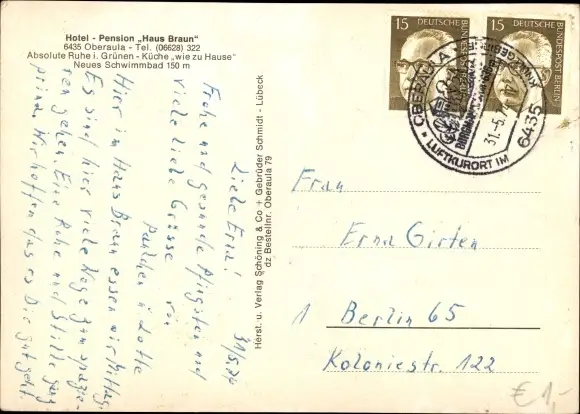 Hotel - Pension „Haus Braun"
6435 Oberaula - Tel. (06628) 322
Absolute Ruhe i. Grünen - Küche „wie zu Hause"
Neues Schwimmbad 150 m
31/5.74
Liebe Erna!
Frohe und gesunde Pfingsten und
viele liebe Grüsse von
Paulchen u. Lotte
Hier im Haus Braun essen wir Mittag.
Es sind hier viele Wege zum spazie-
ren gehen. Eine Ruhe und Stille ganz
prima. Wir hoffen das es Dir gut geht.
Herst. u. Verlag Schöning & Co + Gebrüder Schmidt - Lübeck
dz Bestellnr. Oberaula 79
15 DEUTSCHE BUNDESPOST BERLIN
15 DEUTSCHE BUNDESPOST BERLIN
6435 OBERAULA
31.5.74
LUFTKURORT IM
Frau
Erna Girten
1 Berlin 65
Koloniestr. 122
€ 1,-